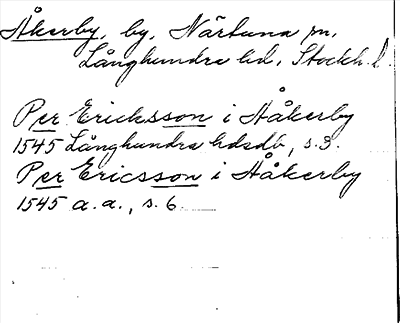 Åkerby, by, Närtuna sn,
Långhundra hd, Stockh. l.
Per Ericksson i Håkerby
1545 Långhundra hdsdb, s. 3.
Per Ericsson i Håkerby
1545 a. a., s. 6.